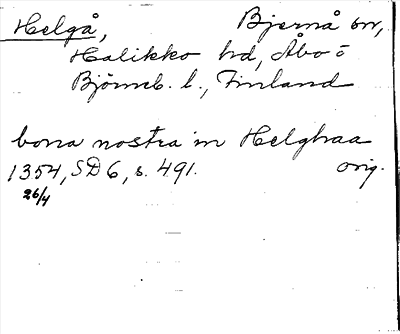 Helgå, Bjernå sn,
Halikko hd, Åbo o
Björneb. l., Finland
bona nostra in Helghaa
1354, SD 6, s. 491. orig.
26/4